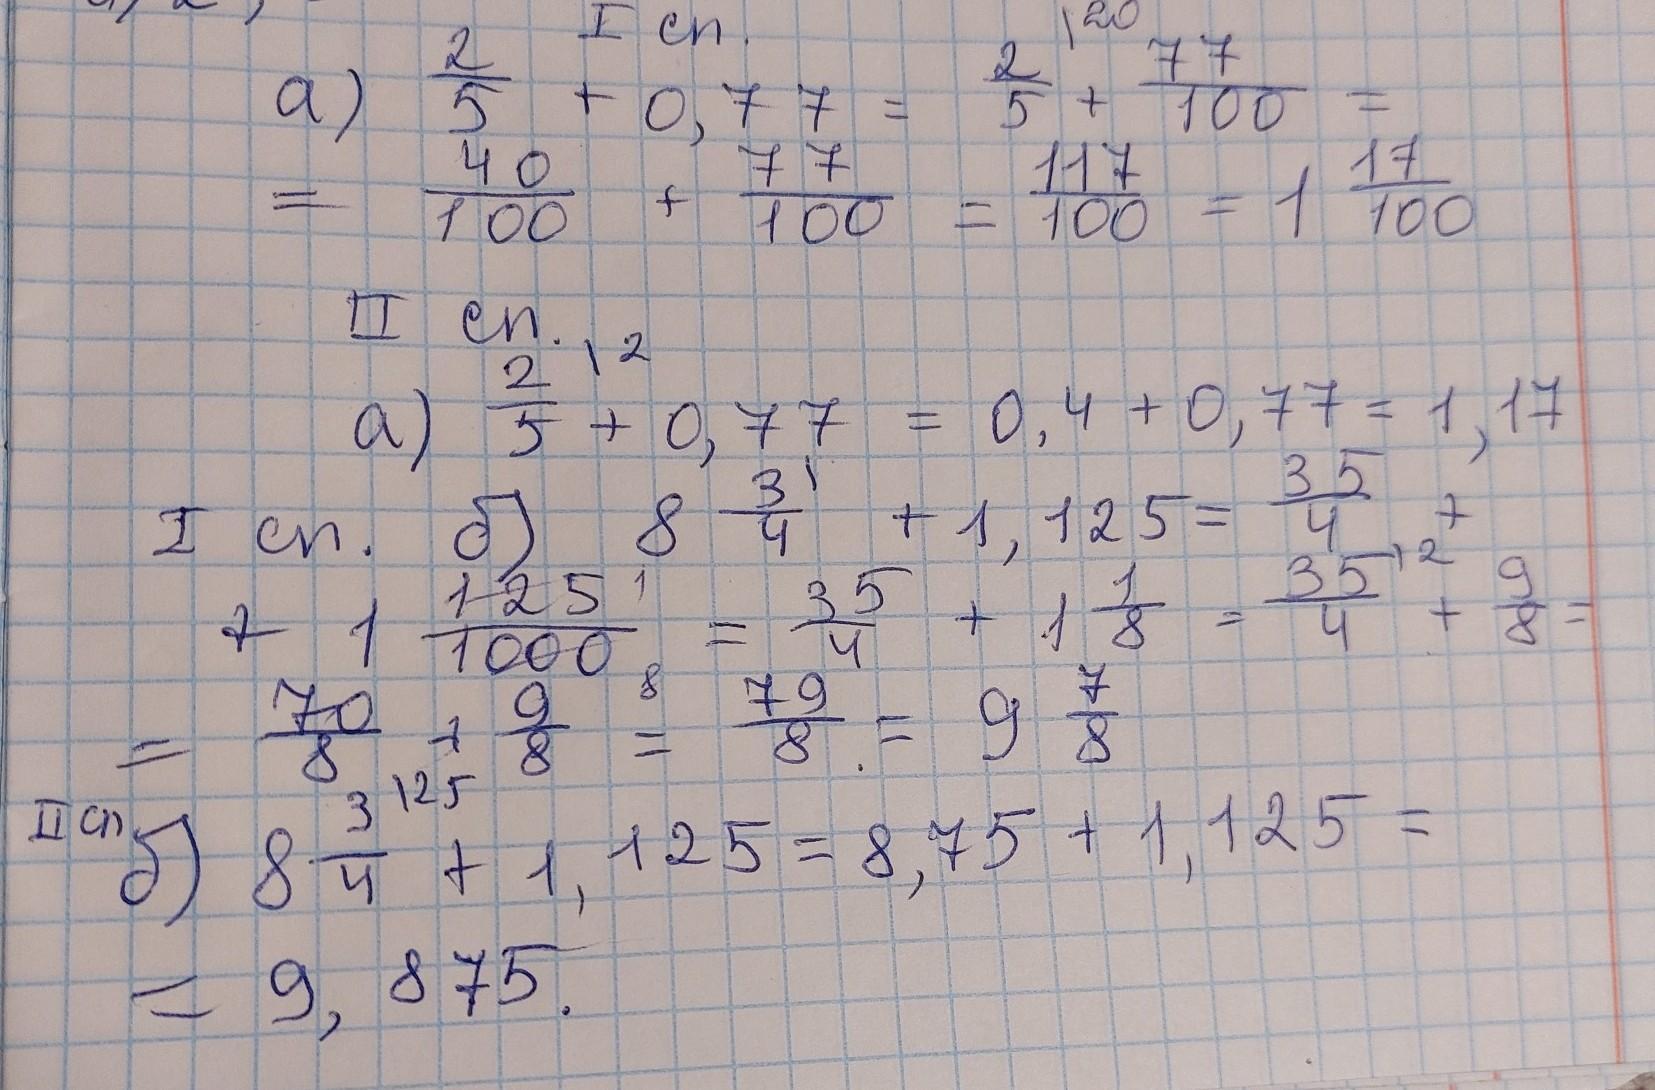 I сп.
а) 2/5 + 0,77 = 2/5 \20 + 77/100 =
= 40/100 + 77/100 = 117/100 = 1 17/100
II сп.
а) 2/5 \2 + 0,77 = 0,4 + 0,77 = 1,17
I сп. б) 8 3/4 \ + 1,125 = 35/4 +
+ 1 125/1000 1 8 = 35/4 + 1 1/8 = 35/4 \2 + 9/8 =
= 70/8 + 9/8 = 79/8 = 9 7/8
II сп б) 8 3/4 \25 + 1,125 = 8,75 + 1,125 =
= 9,875.